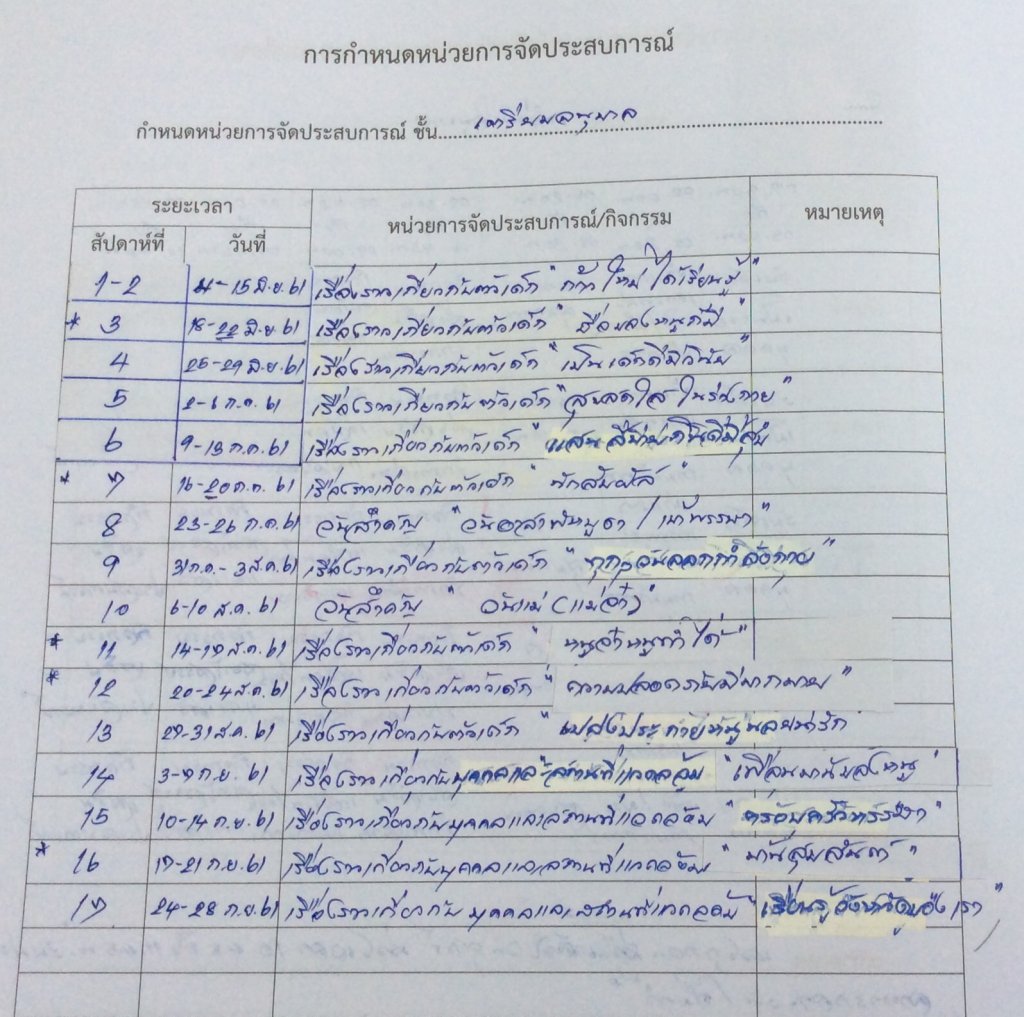 การกำหนดหน่วยการจัดประสบการณ์
กำหนดหน่วยการจัดประสบการณ์ ชั้น เตรียมอนุบาล
ระยะเวลา หน่วยการจัดประสบการณ์/กิจกรรม หมายเหตุ
สัปดาห์ที่ วันที่
1-2 4-15 มิ.ย. 61 เรื่องราวเกี่ยวกับตัวเด็ก " ก้าวใหม่ ได้เรียนรู้ "
* 3 18-22 มิ.ย. 61 เรื่องราวเกี่ยวกับตัวเด็ก " ชื่อของหนูก็มี "
4 25-29 มิ.ย. 61 เรื่องราวเกี่ยวกับตัวเด็ก " เป็นเด็กดีมีวินัย "
5 2-6 ก.ค. 61 เรื่องราวเกี่ยวกับตัวเด็ก " สุขสดใส ในร่างกาย "
6 9-13 ก.ค. 61 เรื่องราวเกี่ยวกับตัวเด็ก " แสน กินดีมีสุข
* 7 16-20 ก.ค. 61 เรื่องราวเกี่ยวกับตัวเด็ก " นักสัมผัส "
8 23-26 ก.ค. 61 วันสำคัญ " วันอาสาฬหบูชา / เข้าพรรษา "
9 31 ก.ค. - 3 ส.ค. 61 เรื่องราวเกี่ยวกับตัวเด็ก " ทุกๆวันออกกำลังกาย "
10 6-10 ส.ค. 61 วันสำคัญ " วันแม่ (แม่จ๋า)
* 11 14-17 ส.ค. 61 เรื่องราวเกี่ยวกับตัวเด็ก " หนูจ๋าหนูทำได้ "
* 12 20-24 ส.ค. 61 เรื่องราวเกี่ยวกับตัวเด็ก " ความปลอดภัยมีมากมาย "
13 27-31 ส.ค. 61 เรื่องราวเกี่ยวกับตัวเด็ก " เปล่งประกายหนูน้อยน่ารัก "
14 3-7 ก.ย. 61 เรื่องราวเกี่ยวกับบุคคลและสถานที่แวดล้อม " เพื่อนบ้านของหนู "
15 10-14 ก.ย. 61 เรื่องราวเกี่ยวกับบุคคลและสถานที่แวดล้อม " ครอบครัวหรรษา "
* 16 17-21 ก.ย. 61 เรื่องราวเกี่ยวกับบุคคลและสถานที่แวดล้อม " บ้านสุขสันต์ "
17 24-28 ก.ย. 61 เรื่องราวเกี่ยวกับบุคคลและสถานที่แวดล้อม " เรียนรู้จังหวัดของเรา "